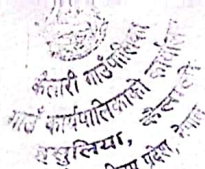 कैलारी गाउँपालिका
गाउँ कार्यपालिकाको कार्यालय
बसुलिया, कैलाली
प्रदेश, नेपाल